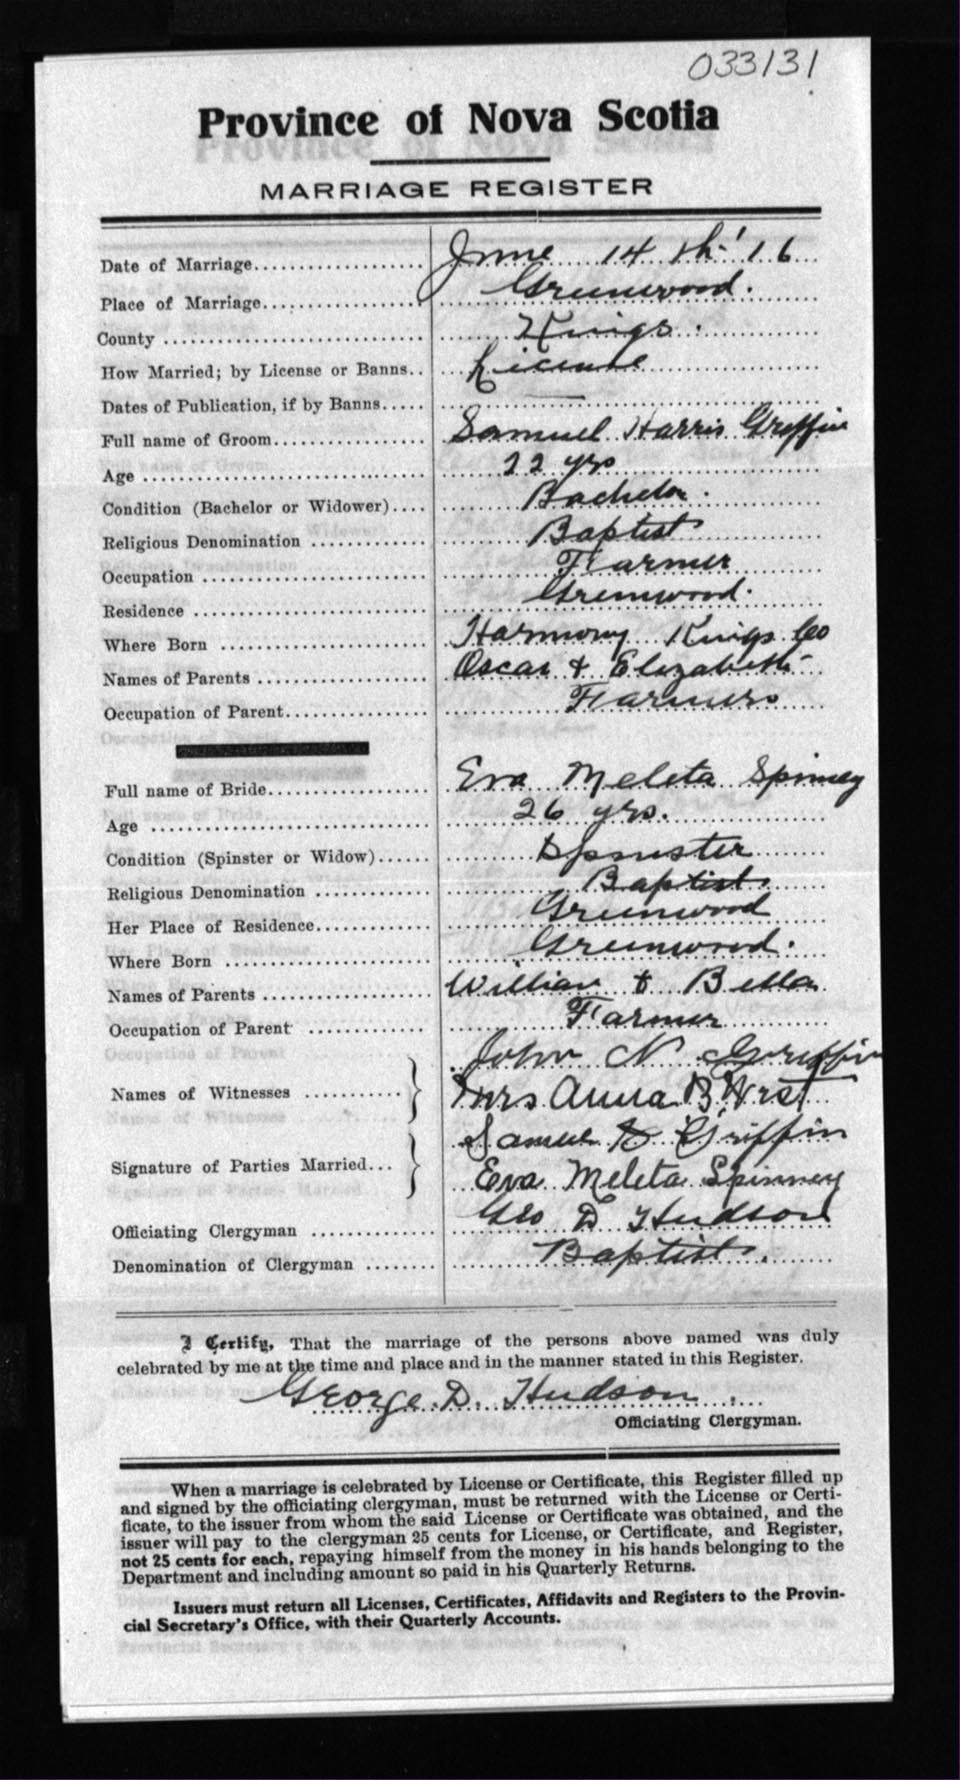 033131
Province of Nova Scotia
MARRIAGE REGISTER
Date of Marriage................... June 14th '16
Place of Marriage................... Greenwood.
County ................... Kings.
How Married; by License or Banns.. License
Dates of Publication, if by Banns..... —
Full name of Groom................... Samuel Harris Griffin
Age ................... 22 yrs
Condition (Bachelor or Widower).... Bachelor.
Religious Denomination ............ Baptist
Occupation ................... Farmer
Residence ................... Greenwood.
Where Born ................... Harmony Kings Co
Names of Parents ................... Oscar & Elizabeth
Occupation of Parent................... Farmers
Full name of Bride................... Eva Meleta Spinney
Age ................... 26 yrs.
Condition (Spinster or Widow)...... Spinster
Religious Denomination ............ Baptist
Her Place of Residence............. Greenwood
Where Born ................... Greenwood.
Names of Parents ................... William & Bella
Occupation of Parent ............ Farmer
John N Griffin
Names of Witnesses ............ Mrs Anna B West
Samuel H Griffin
Signature of Parties Married... Eva Meleta Spinney
Officiating Clergyman ............ Geo D Hudson
Denomination of Clergyman ........ Baptist.
I Certify, That the marriage of the persons above named was duly
celebrated by me at the time and place and in the manner stated in this Register.
George D. Hudson.
Officiating Clergyman.
When a marriage is celebrated by License or Certificate, this Register filled up
and signed by the officiating clergyman, must be returned with the License or Certi-
ficate, to the issuer from whom the said License or Certificate was obtained, and the
issuer will pay to the clergyman 25 cents for License, or Certificate, and Register,
not 25 cents for each, repaying himself from the money in his hands belonging to the
Department and including amount so paid in his Quarterly Returns.
Issuers must return all Licenses, Certificates, Affidavits and Registers to the Provin-
cial Secretary's Office, with their Quarterly Accounts.